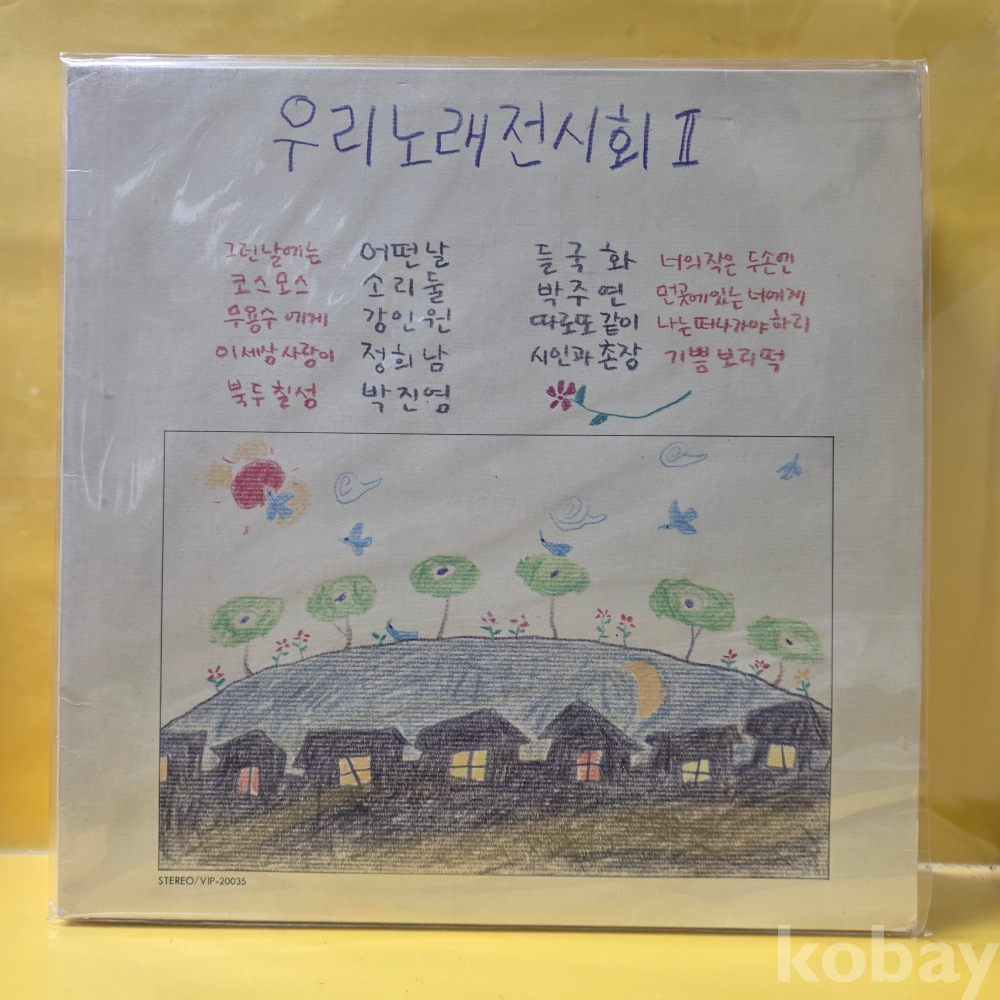 우리노래전시회 II
그런날에는 어떤날
코스모스 소리둘
무용수에게 강인원
이세상사랑이 정희남
북두칠성 박진영
들국화 너의작은 두손엔
박주연 먼곳에있는 너에게
따로또같이 나는떠나가야하리
시인과촌장 기쁨보리떡
STEREO/VIP-20035
kobay